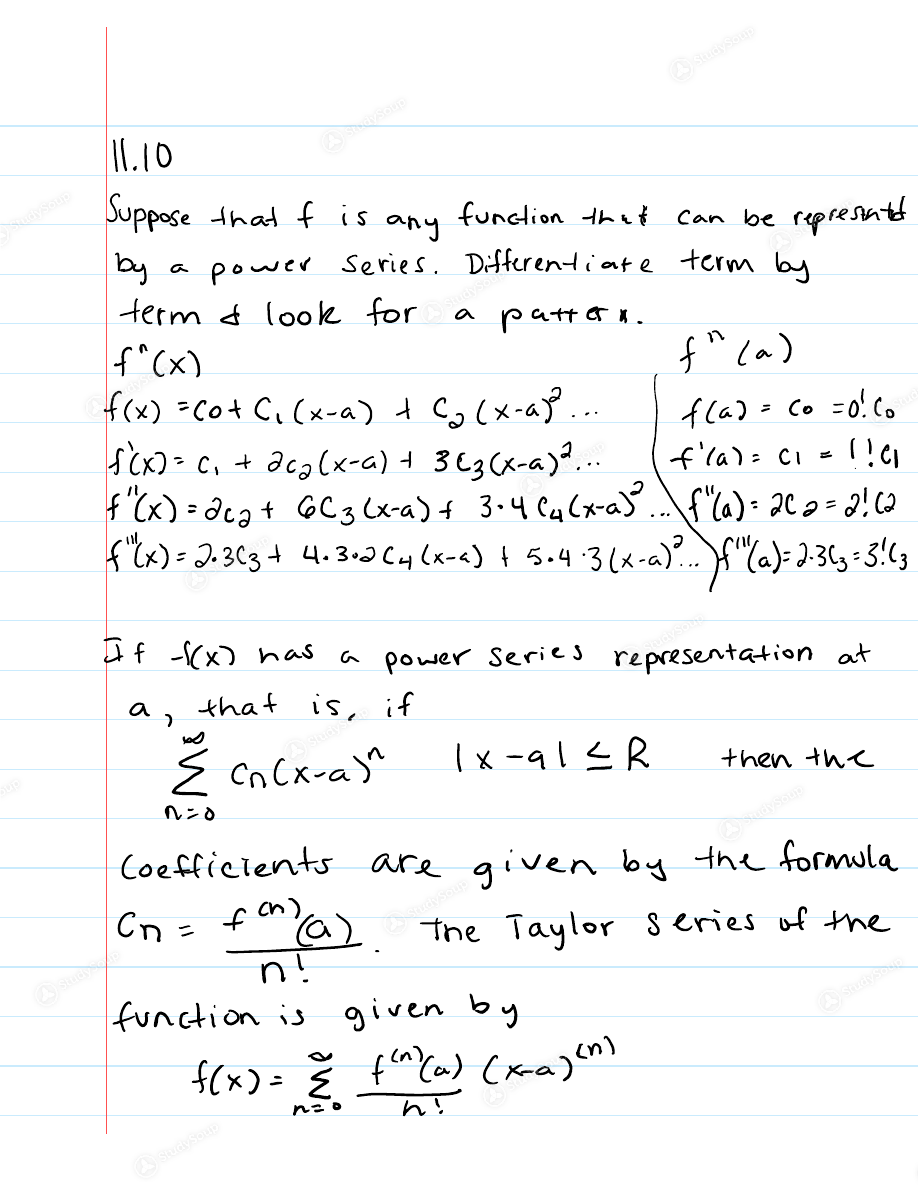 11.10
Suppose that f is any function that can be represented
by a power series. Differentiate term by
term & look for a pattern.
fⁿ(x) fⁿ(a)
f(x) = C0 + C₁(x-a) + C₂(x-a)²... f(a) = C0 = 0!C₀
f'(x) = C₁ + 2C₂(x-a) + 3C₃(x-a)²... f'(a) = C1 = 1!C1
f''(x) = 2C₂ + 6C₃(x-a) + 3·4C₄(x-a)²... f''(a) = 2C₂ = 2!C2
f'''(x) = 2·3C₃ + 4·3·2C₄(x-a) + 5·4·3(x-a)²... f'''(a) = 2·3C₃ = 3!C₃
If f(x) has a power series representation at
a, that is, if
∞
Σ Cn(x-a)ⁿ |x-a| ≤ R then the
n=0
Coefficients are given by the formula
Cn = f⁽ⁿ⁾(a)/n!. The Taylor series of the
function is given by
f(x) = ∞Σn=0 f⁽ⁿ⁾(a)/n! (x-a)⁽ⁿ⁾
StudySoup